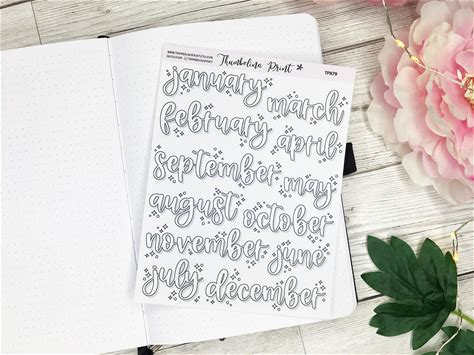 Thumbelina Print
TPB79
january
march
february
april
september
may
august
october
november
june
july
december